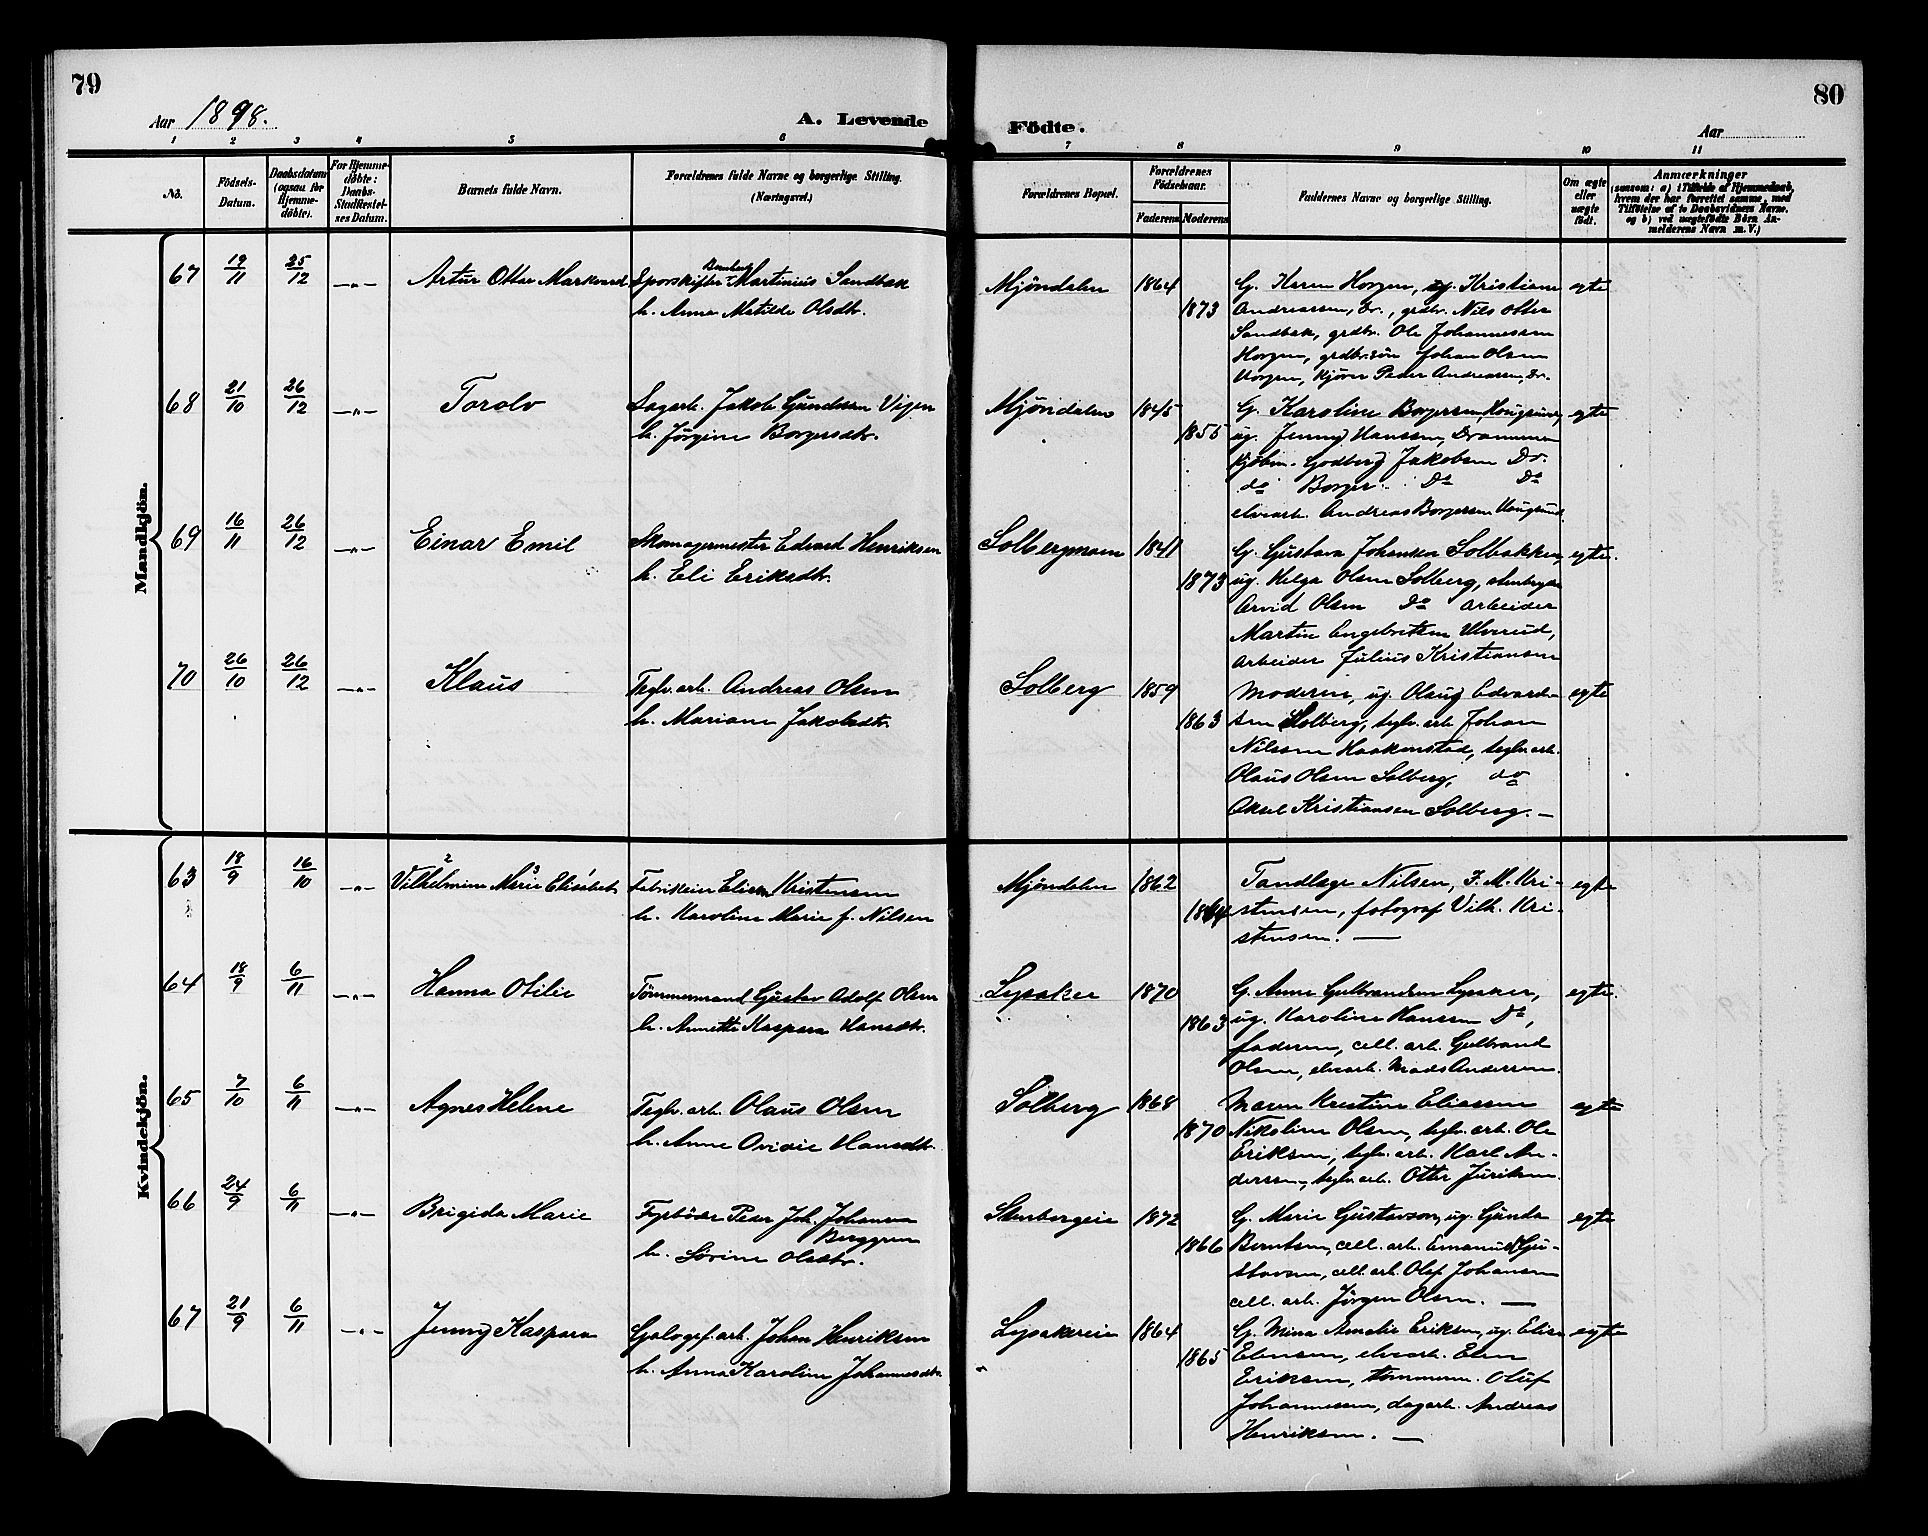 79
Aar 1898.
A. Levende
1 2 3 4 5 6
No.
Födsels-Datum.
Daabsdatum (ogsaa for Hjemmedöbte).
For Hjemmedöbte: Daabs-Stadfæstelses Datum.
Barnets fulde Navn.
Forældrenes fulde Navne og borgerlige Stilling.
(Næringsvei.)
Mandkjön.
67 19/11 25/12 —„— Artur Otter Markvard Sporskifter Bernhard Martinius Sandbak
h. Anna Matilde Olsdtr.
68 21/10 26/12 —„— Torolv Sagarb. Jakob Gundersen Vigen
h. Jörgine Borgersdtr.
69 16/11 26/12 —„— Einar Emil Skomagermester Edvard Henriksen
h. Eli Eriksdtr.
70 26/10 26/12 —„— Klaus Teglv.arb. Andreas Olsen
h. Mariane Jakobsdtr.
Kvindekjön.
63 18/9 16/10 —„— Vilhelmine Marie Elisabet Fabrikeier Elias Kristensen
h. Karoline Marie f. Nilsen
64 18/9 6/11 —„— Hanna Otilie Tömmermand Gustav Adolf Olsen
h. Annette Kaspara Hansdtr.
65 7/10 6/11 —„— Agnes Helene Teglv. arb. Olaus Olsen
h. Anne Ovidie Hansdtr.
66 24/9 6/11 —„— Brigida Marie Fyrböder Peder Joh. Johansen
Berggren
h. Sörine Olsdtr.
67 21/9 6/11 —„— Jenny Kaspara arb. Johan Henriksen
h. Anna Karoline Johannesdtr.
80
Födte.
Aar
7 8 9 10 11
Forældrenes Bopæl.
Forældrenes Födselsaar.
Faderens Moderens
Faddernes Navne og borgerlige Stilling.
Om ægte eller uægte födt.
Anmærkninger
(saasom: a) i Tilfælde af Hjemmedaab,
hvem der har forrettet samme, med
Tilföielse af to Daabsvidners Navne,
og b) ved uægtefödte Börn An-
melderens Navn m. V.)
Mjöndalen 1864 G. Karen Horgen, ug. Kristiane egte
1873 Andreassen, Dr., grdbr. Nils Otter
Sandbak, grdbr. Ole Johannesen
Horgen, grdbr.sön Johan Olsen
Horgen, kjörer Peder Andreassen, Dr.
Mjöndalen 1845 G. Karoline Borgersen, Hougsund, egte
1855 ug. Jenny Hanssen, Drammen
kjöbm. Godberg Jakobsen Dr.
do Borger Do Do
elvearb. Andreas Borgersen Hougsund.
Solbergmoen 1841 G. Gustava Johansen Solbakken, egte.
1873 ug. Helga Olsen Solberg,
Arvid Olsen Do arbeider
Martin Engebretsen Ulverud,
arbeider Julius Kristiansen
Solberg 1859 Moderen, ug. Olaug Edvard- egte
1863 sen Solberg, teglv. arb. Johan
Nilsen Haakenstad, teglv. arb.
Olaus Olsen Solberg, do
Aksel Kristiansen Solberg. —
Mjöndalen 1862 Tandlæge Nilsen, F. M. Kri- egte
1864 stensen, fotograf Vilh. Kri-
stensen. —
Lysaker 1870 G. Anne Gulbrandsen Lysaker, egte.
1863 ug. Karoline Hanssen Do,
faderen, cell. arb. Gulbrand
Olsen, elvearb. Mads Andersen.
Solberg 1868 Maren Kristine Eliassen egte
1870 Nikoline Olsen, teglv. arb. Ole
Eriksen, teglv. arb. Karl An-
dersen, teglv. arb. Otter Juriksen.
Stenbergeie 1872 G. Marie Gustavson, ug. Gunda egte
1866 Berntsen, cell. arb. Emanuel Gu-
stavsen, cell. arb. Olaf Johansen
cell. arb. Jörgen Olsen. —
Lysakereie 1864 G. Mina Amalie Eriksen, ug. Elise egte
1865 Ellensen, elvearb. Eden
Eriksen, tömmerm. Oluf
Johannessen, dagarb. Andreas
Henriksen. —